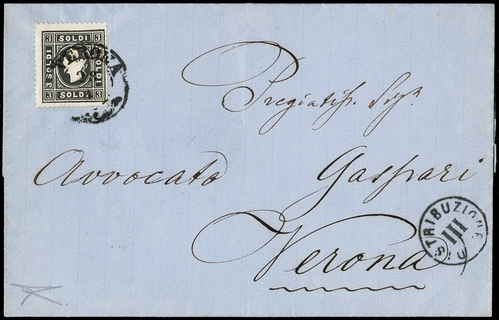 3 SOLDI 3
3 SOLDI
SOLDI 3
3 SOLDI 3
VERONA
Pregiatiss. Sigr.
Avvocato Gaspari
Verona
DISTRIBUZIONE
III